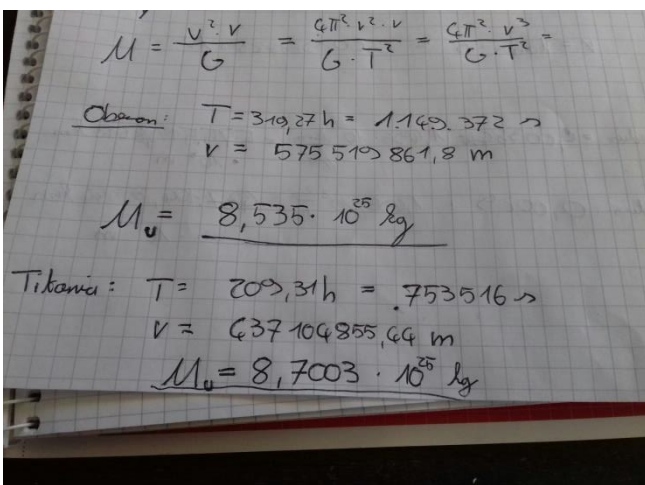 M = v² · r / G = 4π² · r² · r / G · T² = 4π² · r³ / G · T² =
Oberon: T = 319,27 h = 1.149.372 s
r = 575 519 861,8 m
Mᵤ = 8,535 · 10²⁵ kg
Titania: T = 209,31 h = 753516 s
r = 437 104 855,44 m
Mᵤ = 8,7003 · 10²⁵ kg